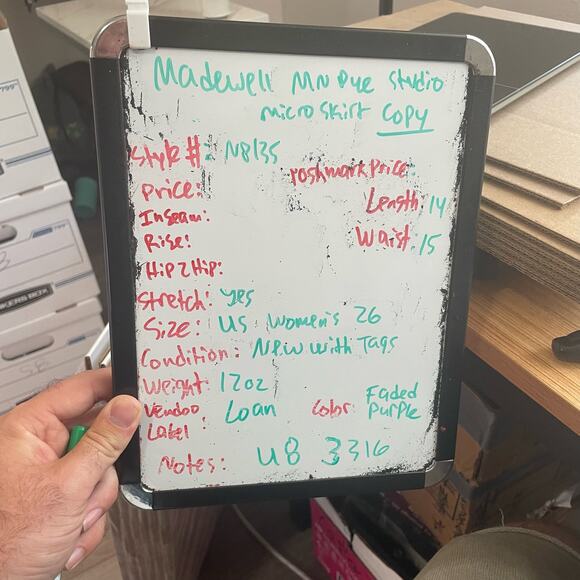 Madewell MN Dye Studio
micro skirt Copy
Style #: N8135
Poshmark Price:
Price:
Length: 14
Inseam:
Waist: 15
Rise:
Hip 2 Hip:
Stretch: yes
Size: US women's 26
Condition: New with Tags
Weight: 12oz
Vendoo Label: Loan
Color: Faded Purple
Notes: U8 3316